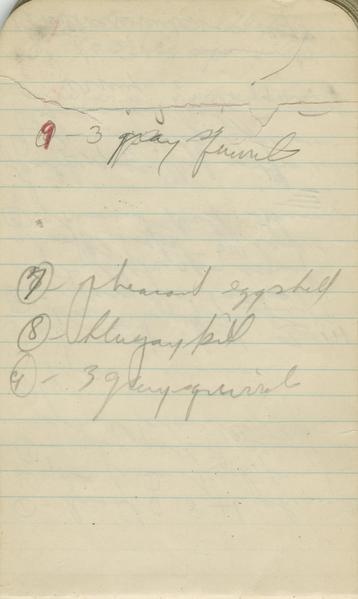 9 - 3 gray squirrels
7 - pheasant eggshell
8 - blue jay kill
9 - 3 gray squirrels